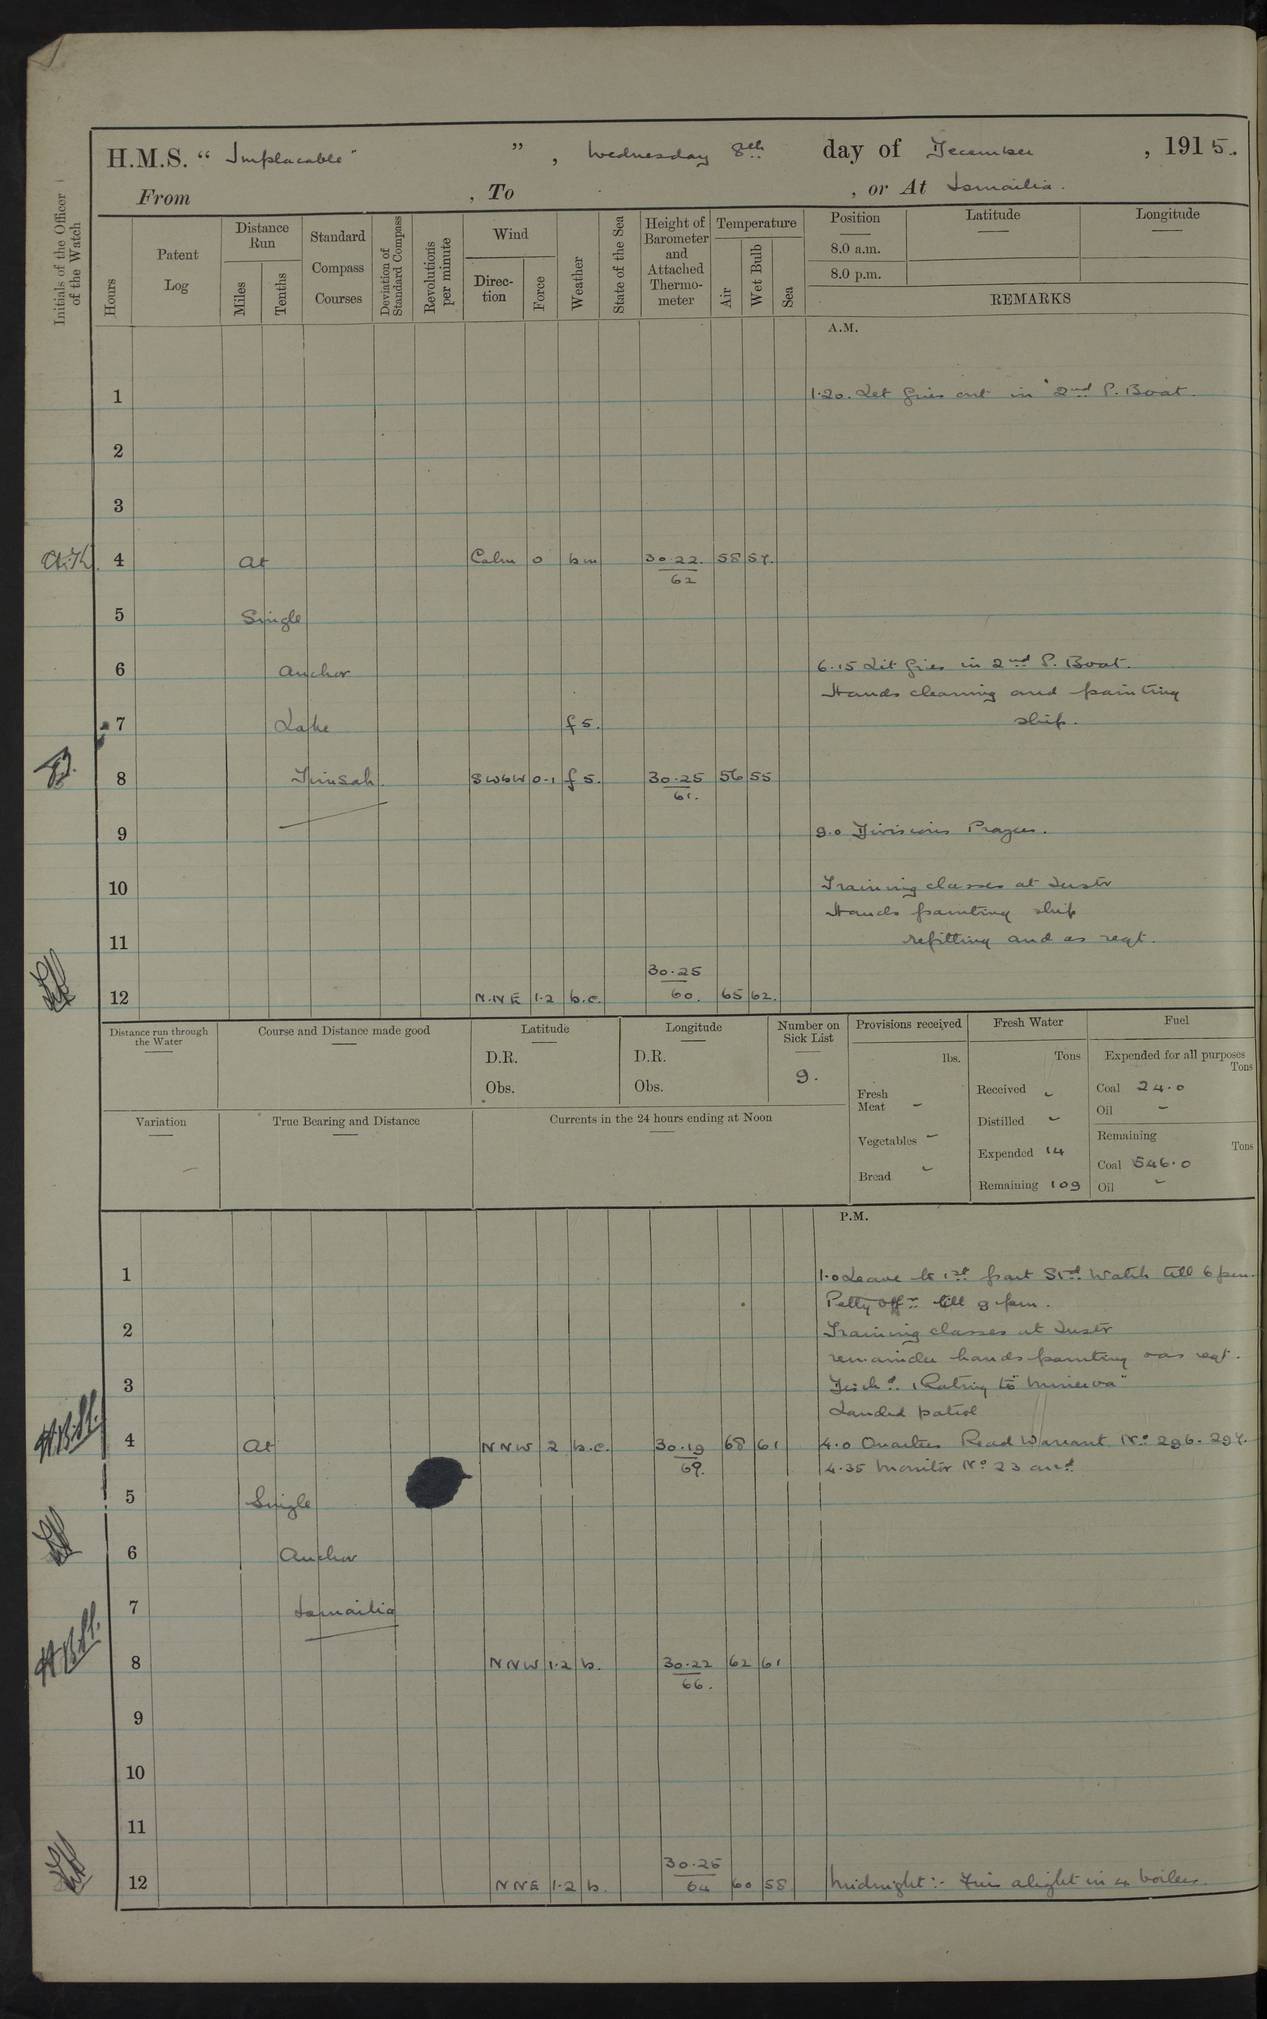 H.M.S. " Implacable " ", Wednesday 8th day of December, 1915.
From , To , or At Ismailia.
Initials of the Officer of the Watch
Hours
Patent Log
Distance Run
Miles
Tenths
Standard Compass Courses
Deviation of Standard Compass
Revolutions per minute
Wind
Direction
Force
Weather
State of the Sea
Height of Barometer and Attached Thermometer
Temperature
Air
Wet Bulb
Sea
Position
8.0 a.m.
8.0 p.m.
Latitude
Longitude
REMARKS
A.M.
1 1.20. Let fires out in 2nd P. Boat.
2
3
4 At Calm 0 bm 30.22. 58 57.
62
5 Single
6 Anchor 6.15 Lit fires in 2nd P. Boat.
Hands cleaning and painting
7 Lake f 5. ship.
8 Timsah. SWbW 0-1 f 5. 30.25 56 55
61.
9 9.0 Divisions Prayers.
10 Training classes at Instr
Hands painting ship
11 refitting and as reqt.
30.25
12 N.NE 1.2 b.c. 60. 65 62.
Distance run through the Water
Course and Distance made good
Latitude
D.R.
Obs.
Longitude
D.R.
Obs.
Number on Sick List
9.
Provisions received
lbs.
Fresh Meat -
Vegetables -
Bread -
Fresh Water
Tons
Received -
Distilled -
Expended 14
Remaining 109
Fuel
Expended for all purposes
Tons
Coal 24.0
Oil -
Remaining
Tons
Coal 546.0
Oil -
Variation
True Bearing and Distance
Currents in the 24 hours ending at Noon
P.M.
1 1.0 Leave to 1st part Stbd Watch till 6 pm.
Petty Offrs till 9 pm.
2 Training classes at Instr
remainder hands painting & as reqt.
3 Disch'd. 1 Rating to "Minerva"
Landed patrol
4 At NNW 2 b.c. 30.19 68 61 4.0 Quarters Read Warrant No. 296. 297.
69. 4.35 Monitor No. 23 arrd.
5 Single
6 Anchor
7 Ismailia
8 NNW 1.2 b. 30.22 62 61
66.
9
10
11
30.26
12 NNE 1.2 b. 64 60 58 Midnight :- Fires alight in 4 boilers.